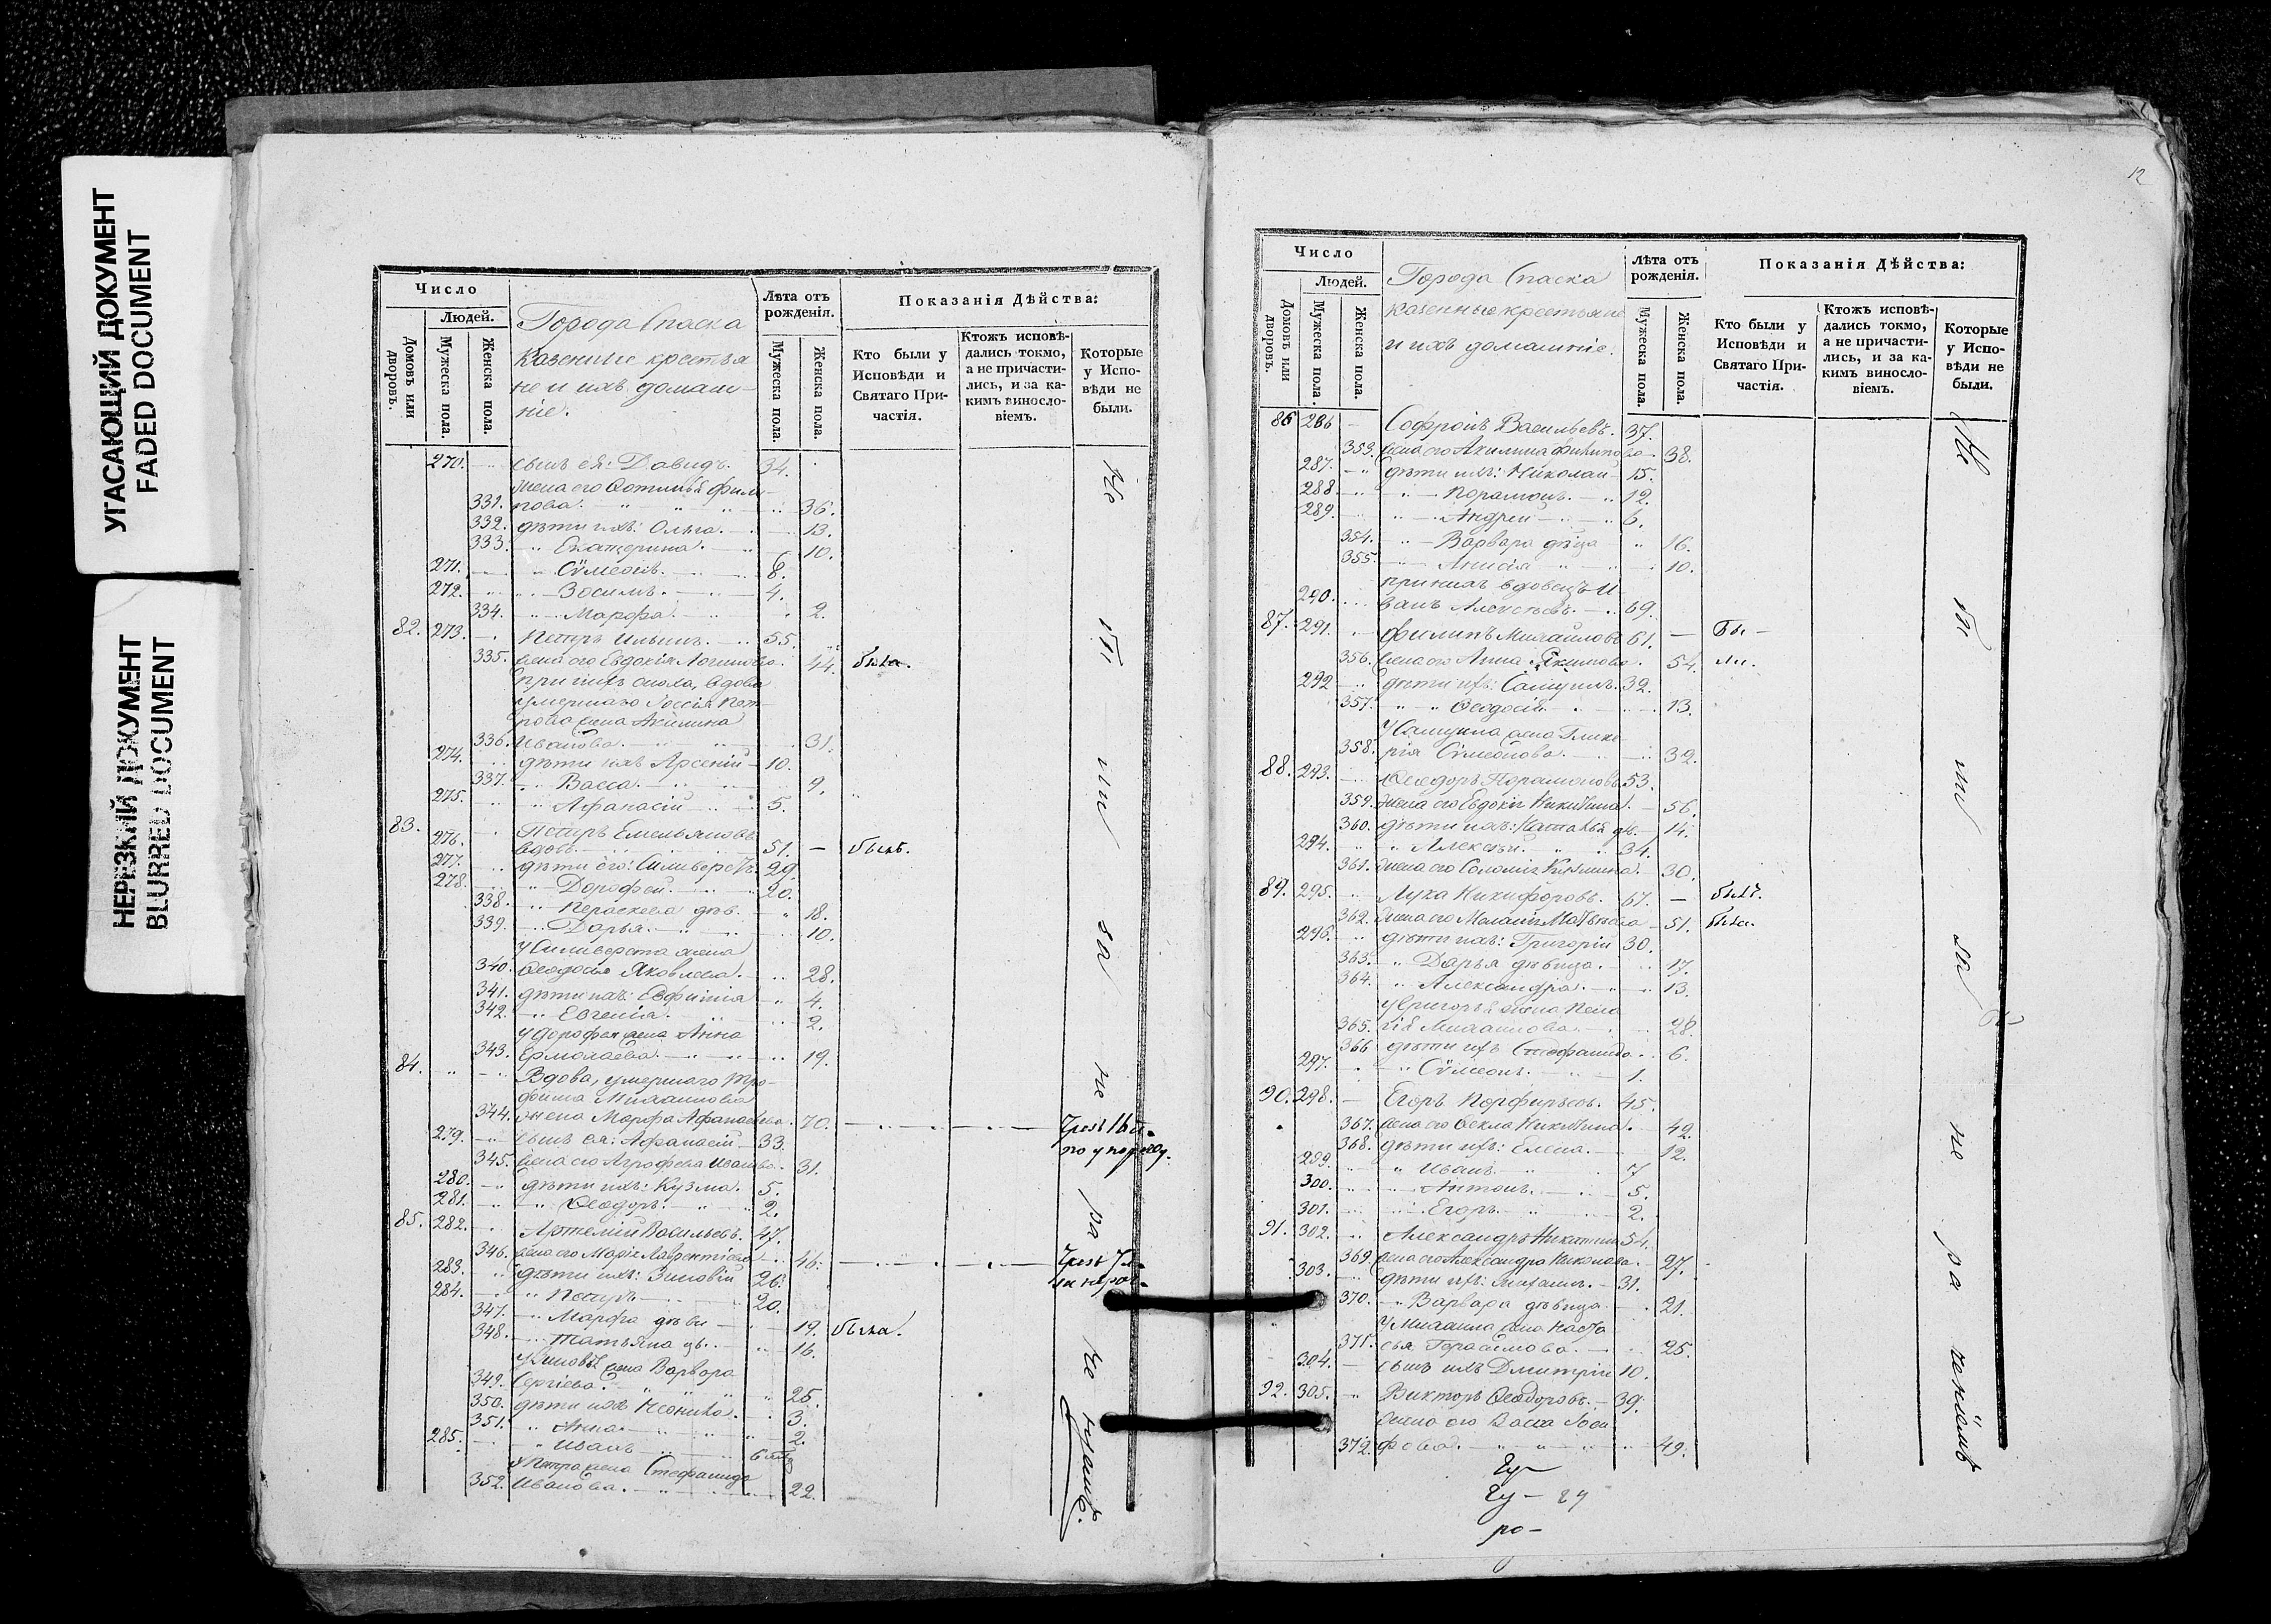 УГАСАЮЩИЙ ДОКУМЕНТ
FADED DOCUMENT
НЕРЕЗКИЙ ДОКУМЕНТ
BLURRED DOCUMENT
Число
Людей.
Домовъ или дворовъ.
Мужеска пола.
Женска пола.
Города Спаска
Казенные крестья
не и ихъ домаш-
ніе.
Лѣта отъ рожденія.
Мужеска пола.
Женска пола.
Показанія Дѣйства:
Кто были у Исповѣди и Святаго При-частія.
Ктожъ исповѣ-дались токмо, а не причасти-лись, и за ка-кимъ винослο-віемъ.
Которые у Испо-вѣди не были.
270. сынъ ея: Давидъ. 34.
жена его Фотинья Фили-
331. пова. 36.
332. дѣти ихъ: Ольга. 13.
333. Екатерина. 10.
271. Сѵмеонъ. 8.
272. Зосимъ. 4.
334. Марфа. 2.
82. 273. Петръ Ильинъ. 55.
335. жена его Евдокія Логинова. 44. была.
при нихъ сноха, вдова
умершаго
жена Акилина
336. Иванова. 31.
274. дѣти ихъ Арсеній 10.
337. Васса. 9.
275. Афанасій 5.
83. Петръ Емельяновъ
276. вдовъ. 51. — былъ.
277. дѣти его: Сильверстъ. 29.
278. Дорофей. 20.
338. Пераскева дѣв. 18.
339. Дарья. 10.
у Сильверста жена
340. Феодосья Яковлева. 28.
341. дѣти ихъ: Евфимія 4.
342. Евгенія. 2.
у Дорофея жена Анна
343. Ермолаева. 19.
84. Вдова, умершаго Тро-
фима Михаилова
344. жена Марфа Афанасьева. 70.
279. сынъ ея: Афанасій 33.
345. жена его Агрофена Иванова. 31.
280. дѣти ихъ: Кузма. 5.
281. Феодоръ. 2.
85. 282. Артемій Васильевъ. 47.
346. жена его Марія Лаврентіева. 46.
283. дѣти ихъ: Зиновій 26.
284. Петръ 20.
347. Марфа дѣви 19. была.
348. Татьяна дѣ. 16.
у Зиновія жена Варвора
349. Сергіева. 25.
350. дѣти ихъ 3.
351. Анна. 2.
285. Иванъ 6
у Петра жена Стефанида
352. Иванова. 22.
12
Число
Людей.
Домовъ или дворовъ.
Мужеска пола.
Женска пола.
Города Спаска
казенные крестьяне
и ихъ домашніе.
Лѣта отъ рожденія.
Мужеска пола.
Женска пола.
Показанія Дѣйства:
Кто были у Исповѣди и Святаго При-частія.
Ктожъ исповѣ-дались токмо, а не причасти-лись, и за ка-кимъ винослο-віемъ.
Которые у Испо-вѣди не были.
86 286 Софронъ Васильевъ. 37.
353. жена его Акилина Филипова 38.
287. дѣти ихъ: Николай 15.
288. Порамонъ. 12.
289. Андрей 6.
354. Варвара дѣвица 16.
355. Анисія 10.
при нихъ вдовецъ И-
290. ванъ Алексѣевъ. 69.
87. 291. Филипъ Михайловъ 61. — Бы-
356. жена его Анна Якимова. 54. ли.
292 дѣти ихъ: Самуилъ. 32.
357. Феодосія 13.
У Самуила жена Глике-
358. рія Сѵмеонова. 32.
88. 293. Феодоръ Порамоновъ 53.
359. жена его Евдокія Никитина. 56.
360. дѣти ихъ: Наталья дѣ. 14.
294. Алексѣй. 34.
361. жена его Соломія Кузмина. 30.
89. 295. Лука Никифоровъ. 67. — былъ.
362. жена его Меланія Матвѣева 51. была.
296. дѣти ихъ: Григорій 30.
363. Дарья дѣвица. 17.
364. Александра. 13.
у Григорья жена Пела
365. гія Михаилова. 28.
366 дѣти ихъ Стефанида. 6.
297. Сѵмеонъ. 1.
90. 298. Егоръ Порфирьевъ. 45.
367. жена его Фекла Никитина. 42.
368. дѣти ихъ: Елена. 12.
299. Иванъ 7
300. Антонъ. 5.
301. Егоръ. 2.
91. 302. Александръ Никитинъ 54.
369 жена его Александра Николаева. 27.
303. дѣти ихъ: Михаилъ. 31.
370. Варвара дѣвица. 21.
у Михаила жена Наста
371. сья Герасимова. 25.
304. сынъ ихъ Дмитрій 10.
92. 305. Викторъ Феодоровъ. 39.
жена его Васса
372. фова. 49.